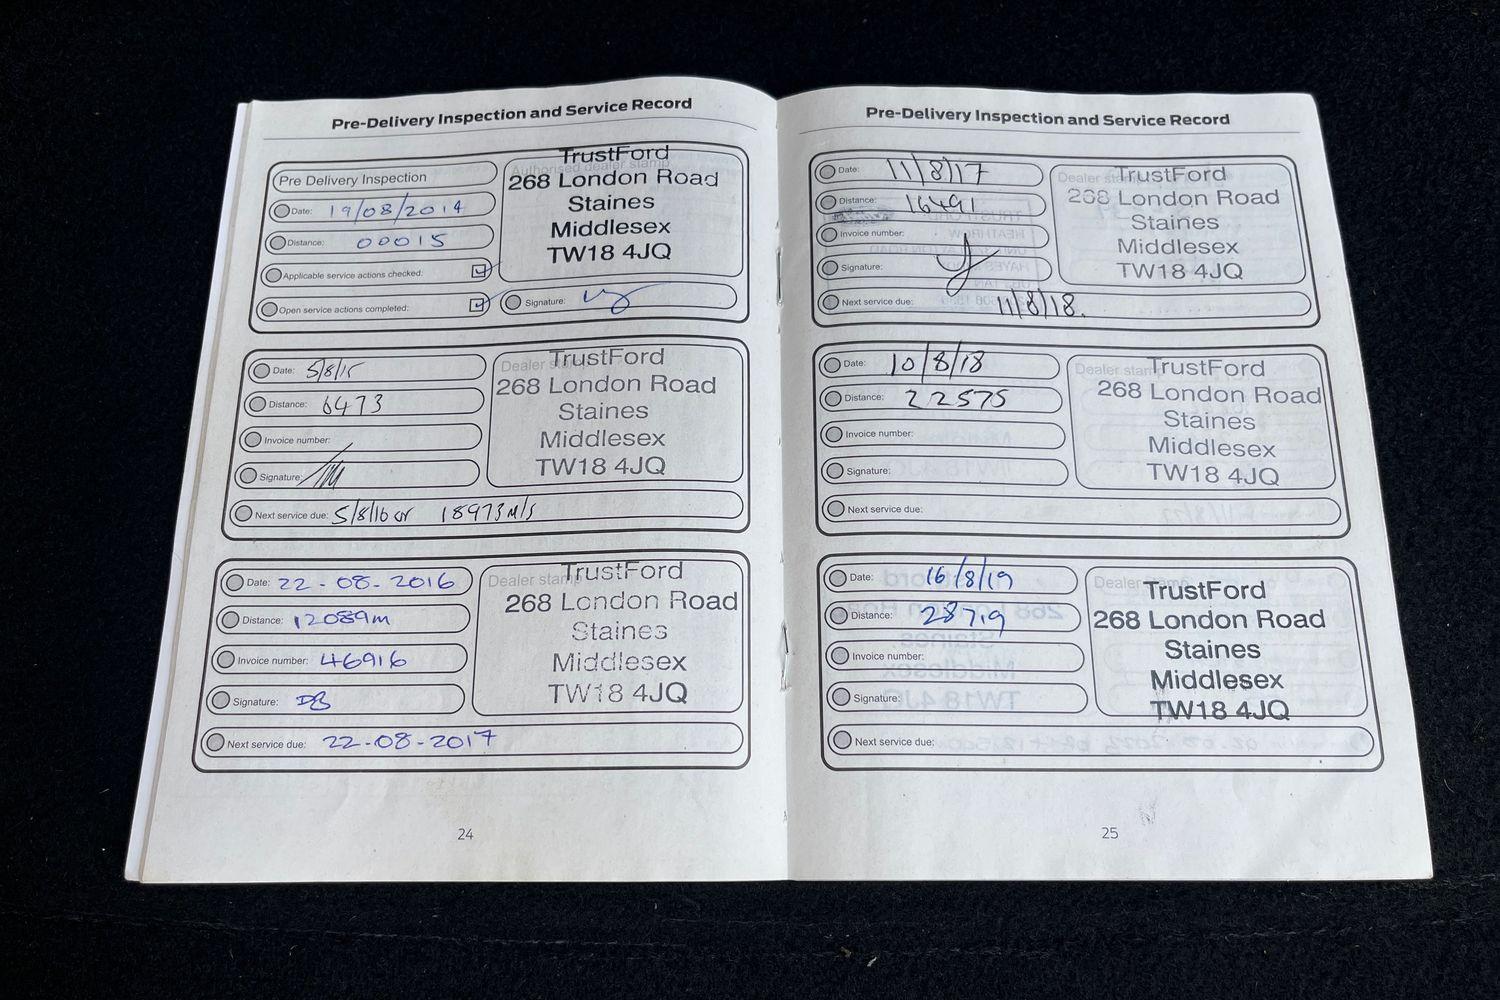 Pre-Delivery Inspection and Service Record
Pre Delivery Inspection
Date: 19/08/2014
Distance: 00015
Applicable service actions checked:
Open service actions completed:
Authorised dealer stamp
TrustFord
268 London Road
Staines
Middlesex
TW18 4JQ
Signature:
Date: 5/8/15
Distance: 6473
Invoice number:
Signature:
Next service due: 5/8/16 or 18973 M/s
Dealer stamp
TrustFord
268 London Road
Staines
Middlesex
TW18 4JQ
Date: 22-08-2016
Distance: 12089m
Invoice number: 46916
Signature: DB
Next service due: 22-08-2017
Dealer stamp
TrustFord
268 London Road
Staines
Middlesex
TW18 4JQ
24
Pre-Delivery Inspection and Service Record
Date: 11/8/17
Distance: 16491
Invoice number:
Signature:
Next service due: 11/8/18.
Dealer stamp
TrustFord
268 London Road
Staines
Middlesex
TW18 4JQ
Date: 10/8/18
Distance: 22575
Invoice number:
Signature:
Next service due:
Dealer stamp
TrustFord
268 London Road
Staines
Middlesex
TW18 4JQ
Date: 16/8/19
Distance: 28719
Invoice number:
Signature:
Next service due:
Dealer stamp
TrustFord
268 London Road
Staines
Middlesex
TW18 4JQ
25